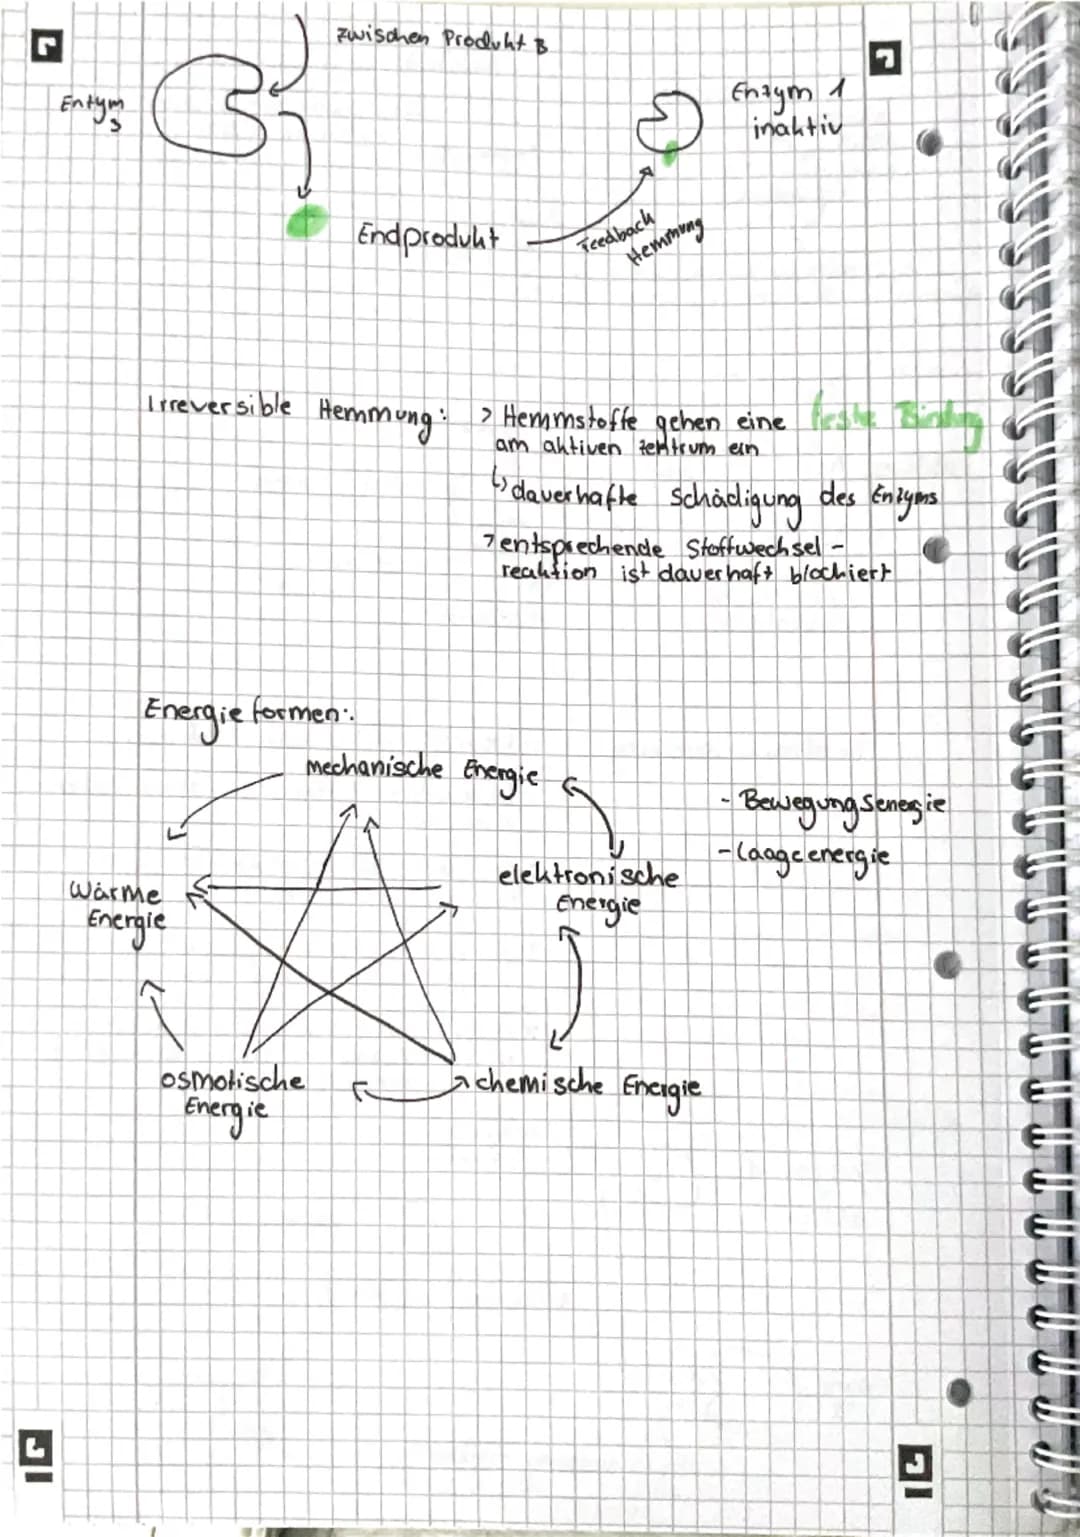 zwischen Produkt B
Enzym
3
Enzym 1
inaktiv
Endprodukt
Feedback
Hemmung
Irreversible Hemmung:
> Hemmstoffe gehen eine feste Bindung
am aktiven zentrum ein
↳ dauerhafte Schädigung des Enzyms
> entsprechende Stoffwechsel -
reaktion ist dauerhaft blockiert
Energieformen:
mechanische Energie
- Bewegungsenergie
- Laageenergie
elektronische
Energie
Wärme
Energie
osmotische
Energie
chemische Energie